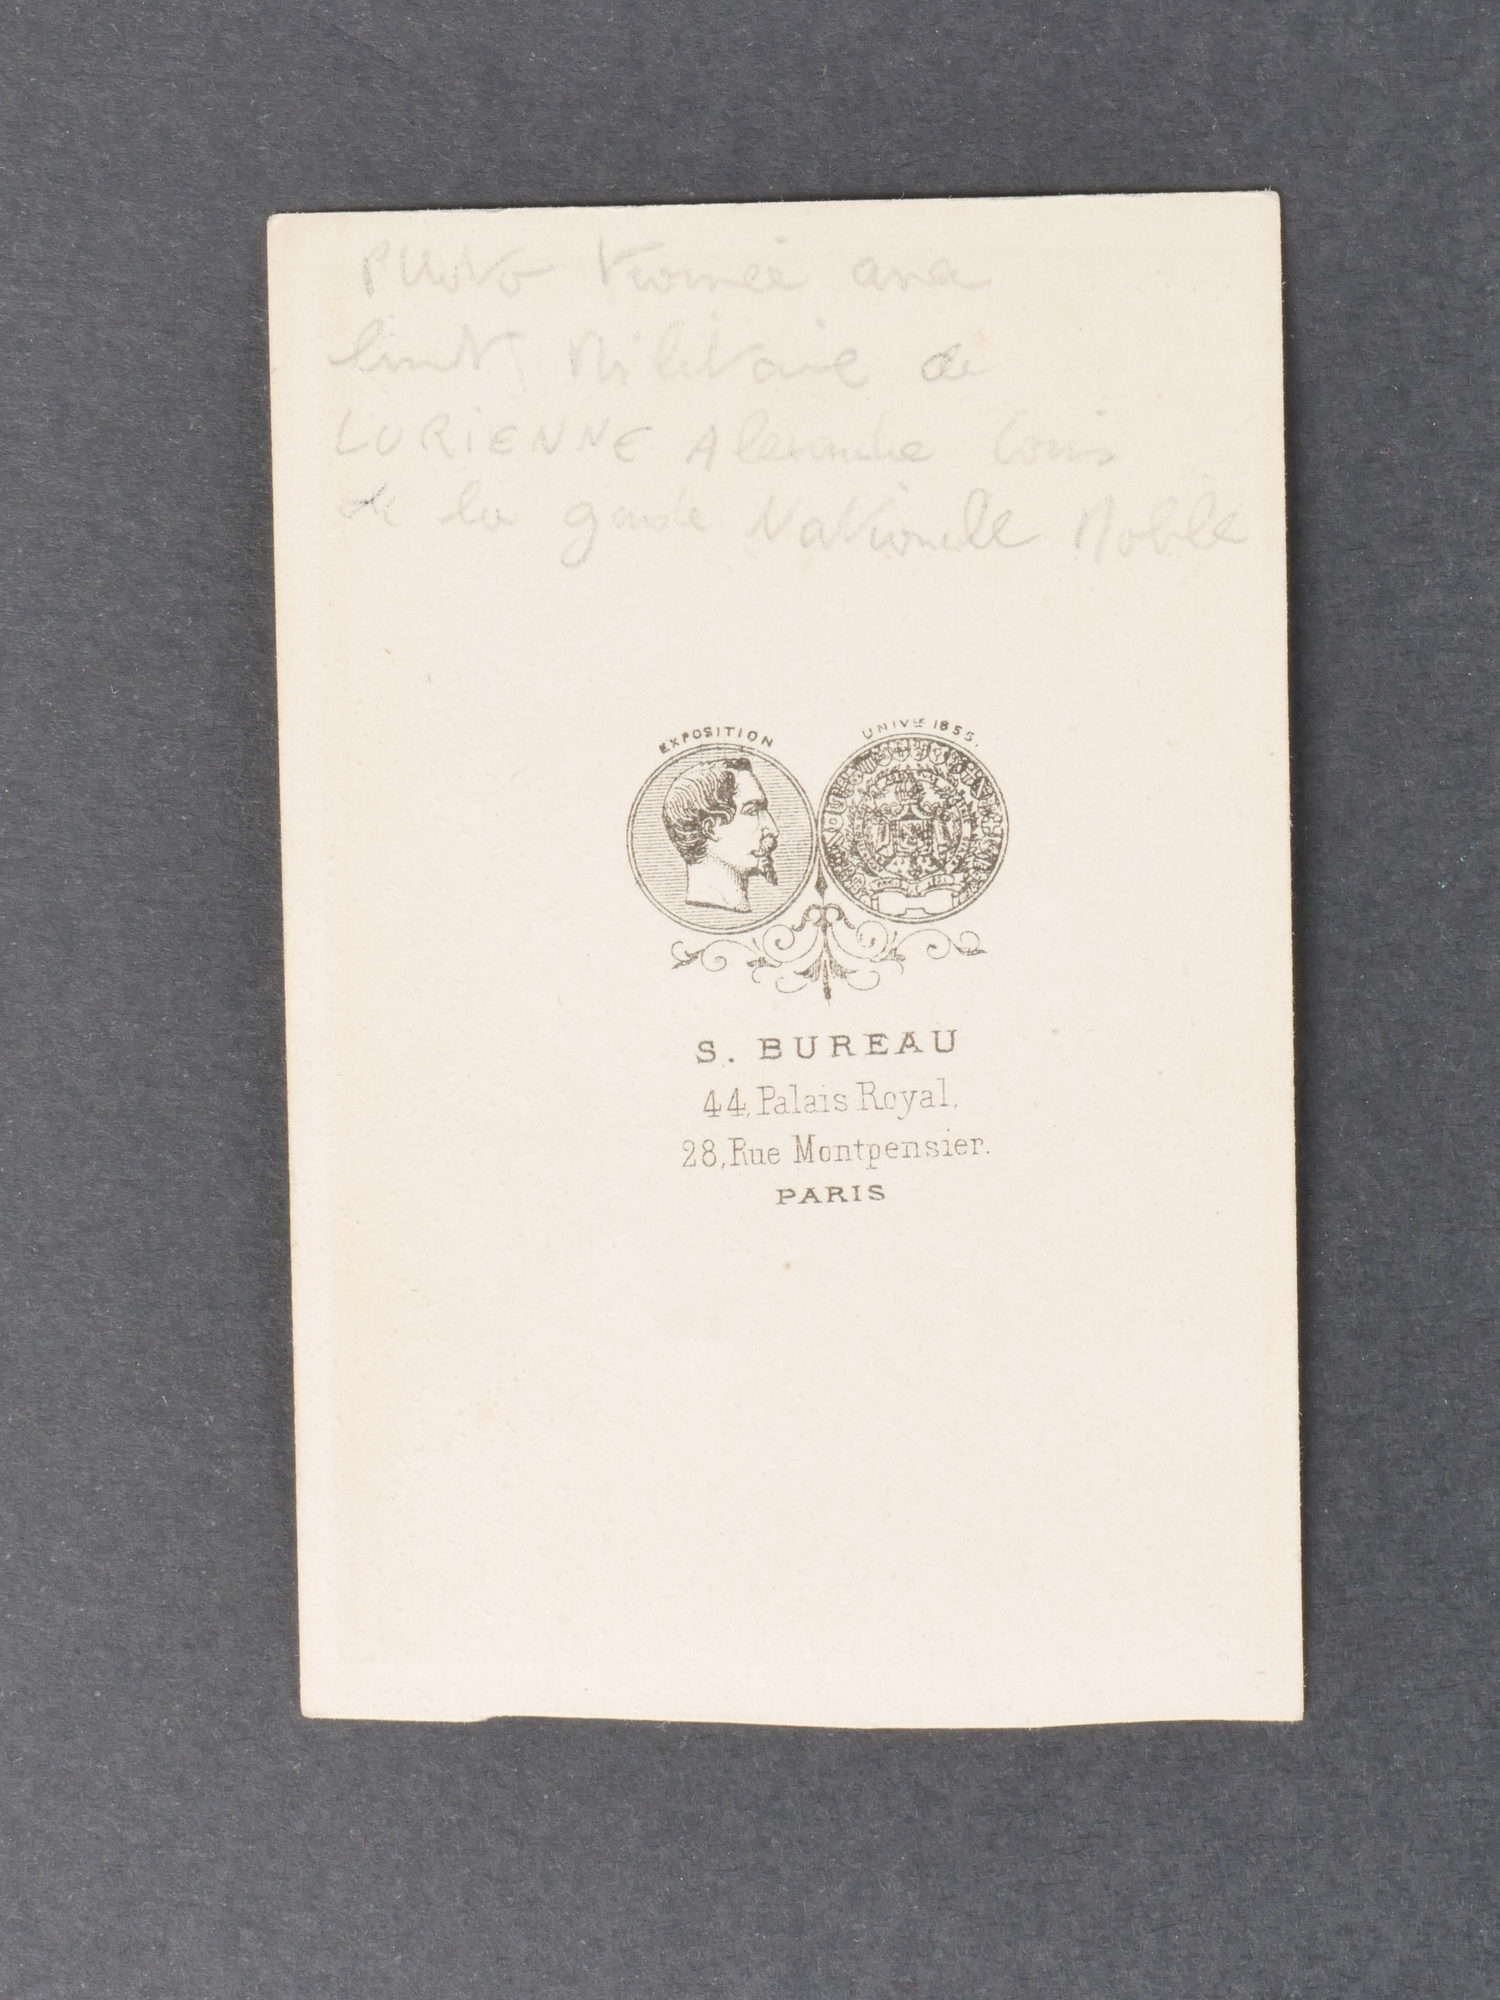 Photo trouvée avec
livret Militaire de
LURIENNE Alexandre Louis
de la garde Nationale Mobile
EXPOSITION UNIVLE 1855.
S. BUREAU
44, Palais Royal,
28, Rue Montpensier.
PARIS